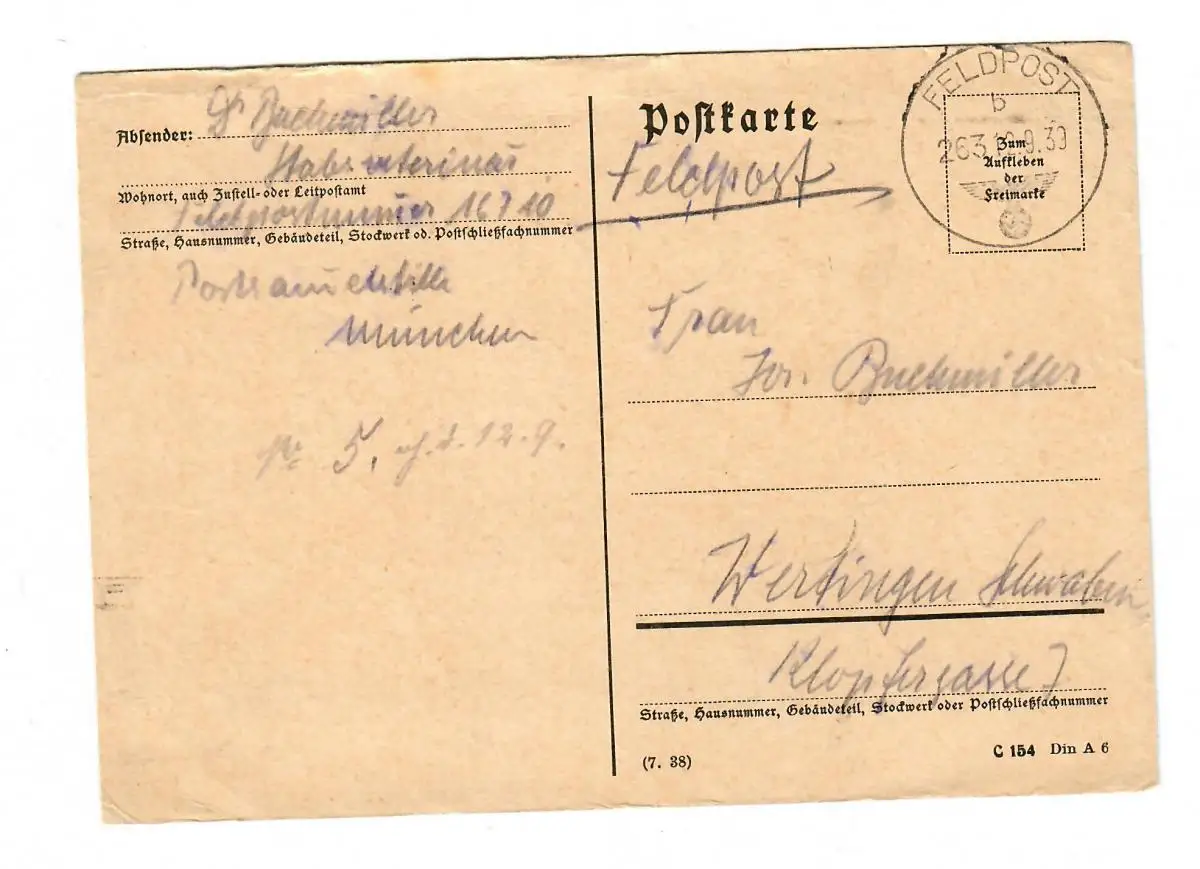 Absender: Dr Buchmiller
Stabsveterinär
Wohnort, auch Zustell- oder Leitpostamt
Feldpostnummer 16710
Straße, Hausnummer, Gebäudeteil, Stockwerk od. Postschließfachnummer
Postsammelstelle
München
5. 12.9.
Postkarte
Feldpost
FELDPOST
b
263 12.9.39
Zum
Aufkleben
der
Freimarke
Frau
Jos. Buchmiller
Wertingen Schwaben
Klopfergasse 7
Straße, Hausnummer, Gebäudeteil, Stockwerk oder Postschließfachnummer
(7. 38)
C 154 Din A 6